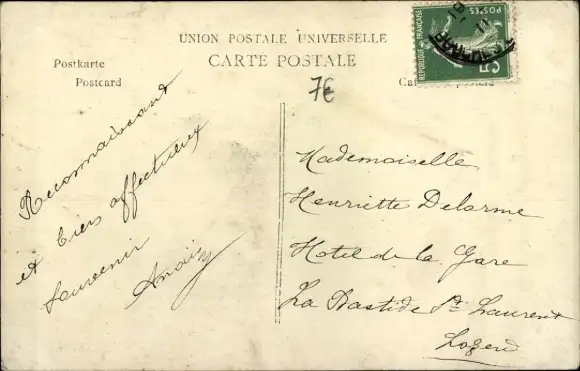 UNION POSTALE UNIVERSELLE
CARTE POSTALE
Postkarte
Postcard
7€
REPUBLIQUE FRANÇAISE
POSTES
5
Reconnaissant
et bien affectueux
souvenir
Anaïs
Mademoiselle
Henriette Delorme
Hotel de la Gare
La Bastide St Laurent
Lozère